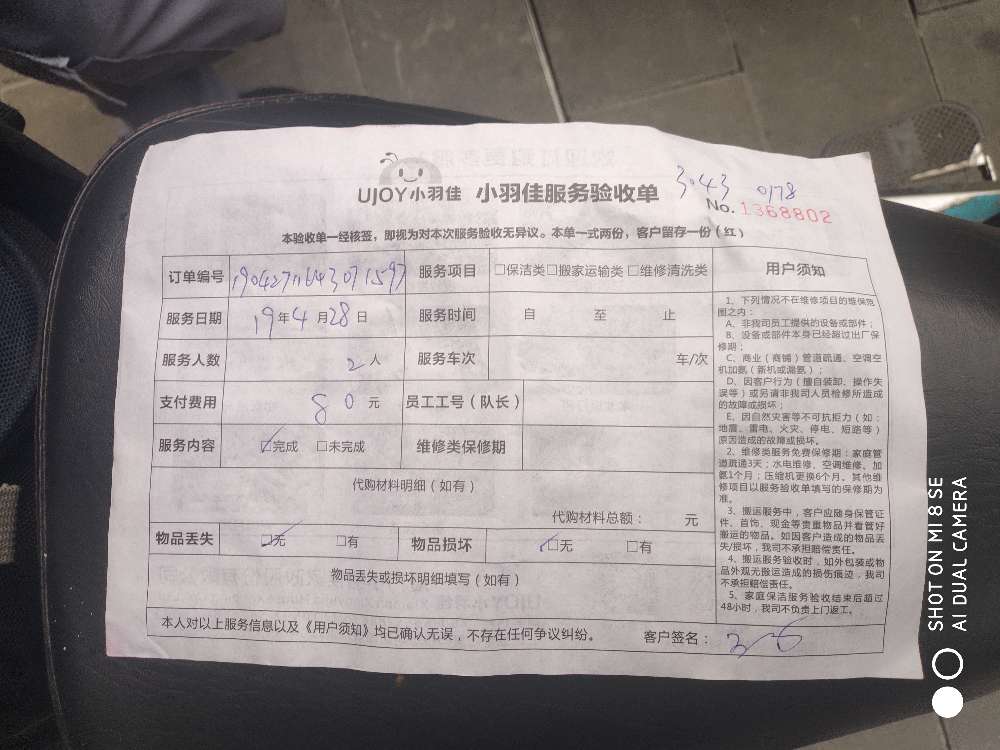 UJOY小羽佳 小羽佳服务验收单
3043 0178
No. 1368802
本验收单一经核签，即视为对本次服务验收无异议。本单一式两份，客户留存一份（红）
订单编号 服务项目 □保洁类□搬家运输类□维修清洗类
服务日期 19年4月28日 服务时间 自 至 止
服务人数 2人 服务车次 车/次
支付费用 80元 员工工号（队长）
服务内容 ☑完成 □未完成 维修类保修期
代购材料明细（如有）
代购材料总额： 元
物品丢失 ☑无 □有 物品损坏 ☑无 □有
物品丢失或损坏明细填写（如有）
本人对以上服务信息以及《用户须知》均已确认无误，不存在任何争议纠纷。 客户签名：
用户须知
1、下列情况不在维修项目的维保范
围之内：
A、非我司员工提供的设备或部件；
B、设备或部件本身已经超过出厂保
修期；
C、商业（商铺）管道疏通、空调空
机加氨（新机或漏氨）；
D、因客户行为（擅自装卸、操作失
误等）或另请非我司人员检修所造成
的故障或损坏；
E、因自然灾害等不可抗拒力（如：
地震、雷电、火灾、停电、短路等）
原因造成的故障或损坏。
2、维修类服务免费保修期：家庭管
道疏通3天；水电维修、空调维修、加
氨1个月；压缩机更换6个月。其他维
修项目以服务验收单填写的保修期为
准。
3、搬运服务中，客户应随身保管证
件、首饰、现金等贵重物品并看管好
搬运的物品。如因客户造成的物品丢
失/损坏，我司不承担赔偿责任。
4、搬运服务验收时，如外包装或物
品外观无搬运造成的损伤痕迹，我司
不承担赔偿责任。
5、家庭保洁服务验收结束后超过
48小时，我司不负责上门返工。
SHOT ON MI 8 SE
AI DUAL CAMERA